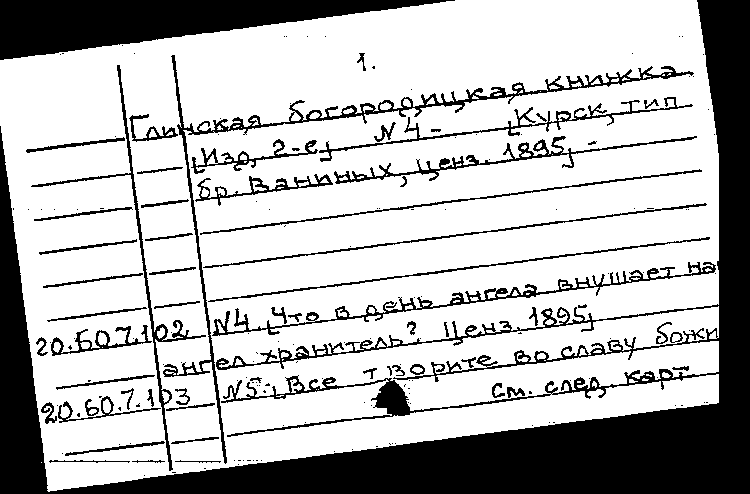 1.
Глинская богородицкая книжка.
[Изд. 2-е]. N 4 - [Курск, тип
бр. Ваниных, ценз. 1895] -
20.60.7.102 N4. [Что в день ангела внушает на
ангел хранитель? Ценз. 1895]
20.60.7.103 N5. [Все творите во славу божи
См. след. карт.